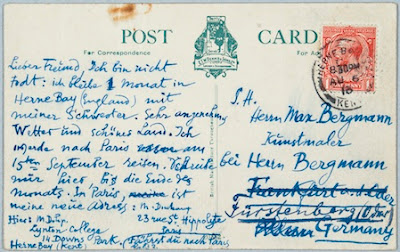 POST CARD
For Correspondence
For Ad
HERNE BAY
8.30 PM
AU 6
KENT
Lieber Freund. Ich bin nicht
todt: ich bleibe 1 monat in
Herne Bay (England) mit
meiner Schwester. Sehr angenehm
Wetter und schönes Land. Ich
werde nach Paris
15ten September reisen. Schreibe
mir hier bis die Ende des
monats. In Paris, ist
meine neue Adress: M. Duchamp
23 rue St. Hippolyte
Paris
Hier: M. Dchp.
Lynton College
14 Downs Park.
Herne Bay (Kent)
Fährst du nach Paris
S. H.
Herrn Max Bergmann
Kunstmaler
bei Herrn Bergmann
Frankfurt a. d. Oder
Fürstenberg (Oder)
Germany